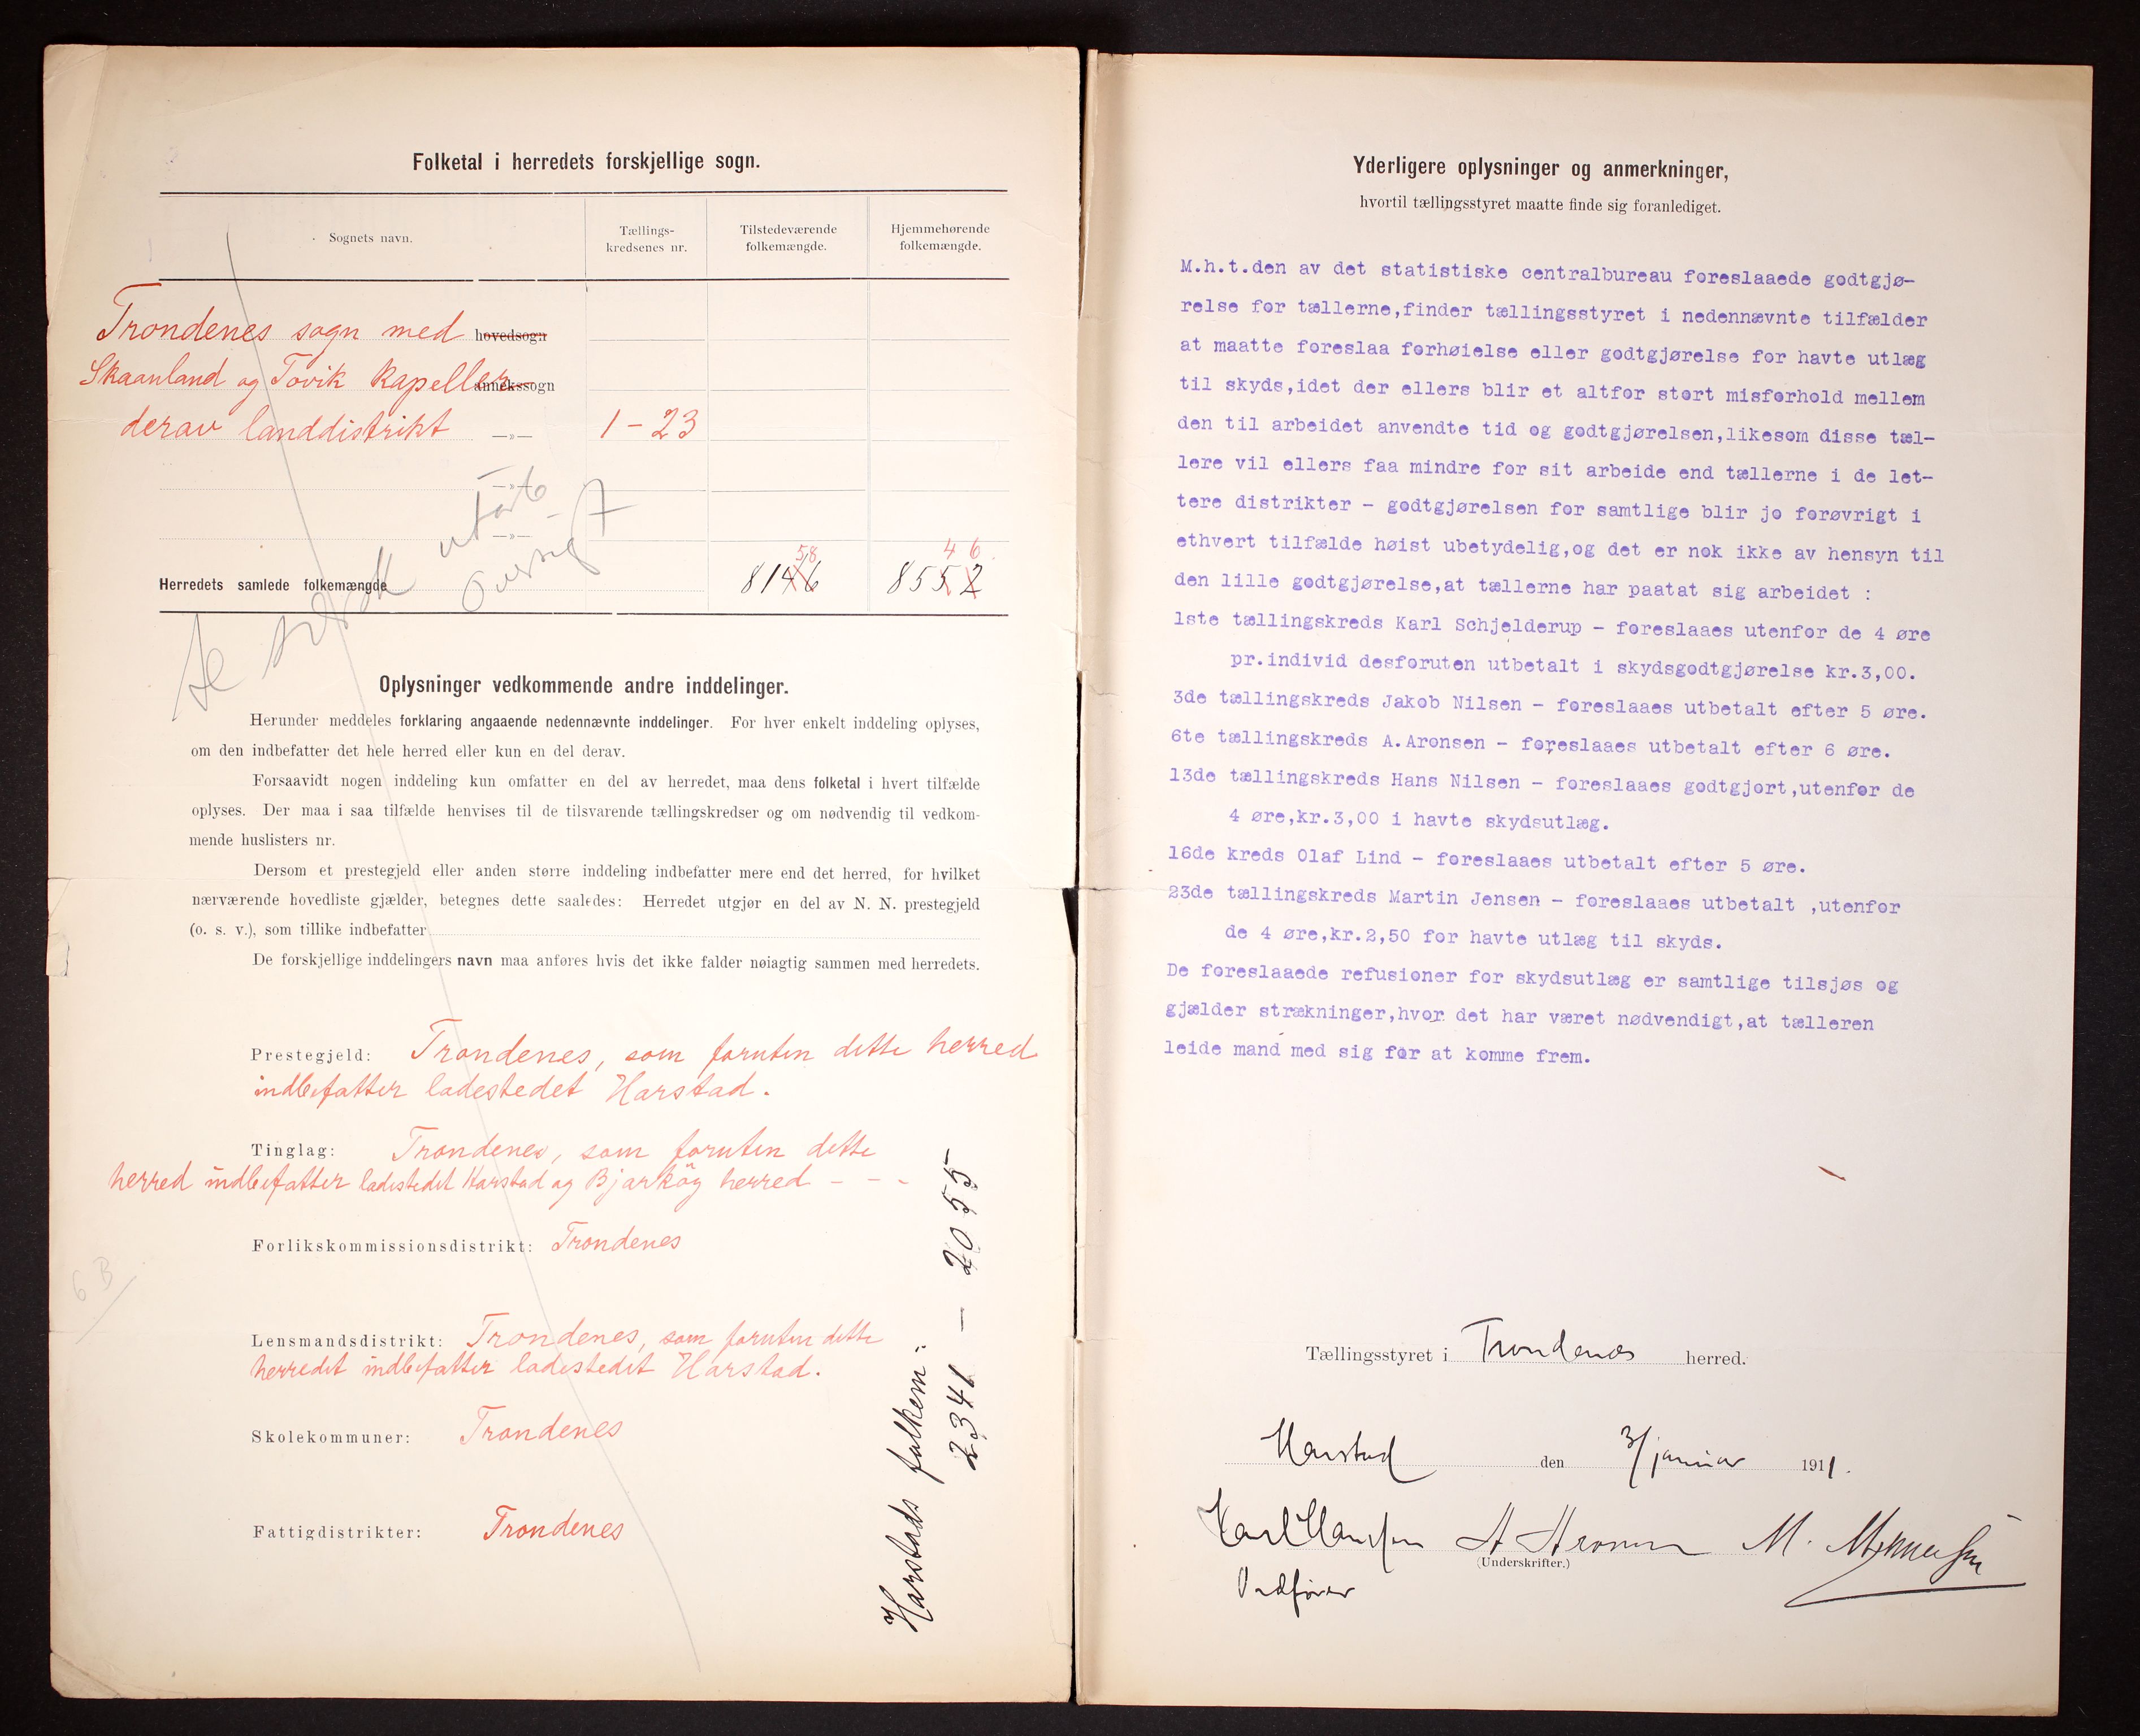 Folketal i herredets forskjellige sogn.
Sognets navn.
Tællings-
kredsenes nr.
Tilstedeværende
folkemængde.
Hjemmehørende
folkemængde.
Trondenes sogn med hovedsogn
Skaanland og Tovik kapeller annekssogn
derav landdistrikt —»— 1-23
—»—
—»—
58
4 6
Herredets samlede folkemængde 8146 8552
Se særsk utført
oversigt
Oplysninger vedkommende andre inddelinger.
Herunder meddeles forklaring angaaende nedennævnte inddelinger. For hver enkelt inddeling oplyses,
om den indbefatter det hele herred eller kun en del derav.
Forsaavidt nogen inddeling kun omfatter en del av herredet, maa dens folketal i hvert tilfælde
oplyses. Der maa i saa tilfælde henvises til de tilsvarende tællingskredser og om nødvendig til vedkom-
mende huslisters nr.
Dersom et prestegjeld eller anden større inddeling indbefatter mere end det herred, for hvilket
nærværende hovedliste gjælder, betegnes dette saaledes: Herredet utgjør en del av N. N. prestegjeld
(o. s. v.), som tillike indbefatter
De forskjellige inddelingers navn maa anføres hvis det ikke falder nøiagtig sammen med herredets.
Prestegjeld: Trondenes, som foruten dette herred
indbefatter ladestedet Harstad.
Tinglag: Trondenes, som foruten dette
herred indbefatter ladestedet Harstad og Bjarköy herred - - -
Forlikskommissionsdistrikt: Trondenes
6 B
Lensmandsdistrikt: Trondenes, som foruten dette
herredet indbefatter ladestedet Harstad.
Skolekommuner: Trondenes
Fattigdistrikter: Trondenes
Harstads folkem:
2341 — 2055
Yderligere oplysninger og anmerkninger,
hvortil tællingsstyret maatte finde sig foranlediget.
M.h.t.den av det statistiske centralbureau foreslaaede godtgjø-
relse for tællerne,finder tællingsstyret i nedennævnte tilfælder
at maatte foreslaa forhøielse eller godtgjørelse for havte utlæg
til skyds,idet der ellers blir et altfor stort misforhold mellem
den til arbeidet anvendte tid og godtgjørelsen,likesom disse tæl-
lere vil ellers faa mindre for sit arbeide end tællerne i de let-
tere distrikter - godtgjørelsen for samtlige blir jo forøvrigt i
ethvert tilfælde høist ubetydelig,og det er nok ikke av hensyn til
den lille godtgjørelse,at tællerne har paatat sig arbeidet :
1ste tællingskreds Karl Schjelderup - foreslaaes utenfor de 4 øre
pr.individ desforuten utbetalt i skydsgodtgjørelse kr.3,00.
3de tællingskreds Jakob Nilsen - foreslaaes utbetalt efter 5 øre.
6te tællingskreds A.Aronsen - foreslaaes utbetalt efter 6 øre.
13de tællingskreds Hans Nilsen - foreslaaes godtgjort,utenfor de
4 øre,kr.3,00 i havte skydsutlæg.
16de kreds Olaf Lind - foreslaaes utbetalt efter 5 øre.
23de tællingskreds Martin Jensen - foreslaaes utbetalt ,utenfor
de 4 øre,kr.2,50 for havte utlæg til skyds.
De foreslaaede refusioner for skydsutlæg er samtlige tilsjøs og
gjælder strækninger,hvor det har været nødvendigt,at tælleren
leide mand med sig for at komme frem.
Tællingsstyret i Trondenes herred.
Harstad den 3/januar 1911.
Karl Hansen A Aronsen M.
(Underskrifter.)
Ordfører